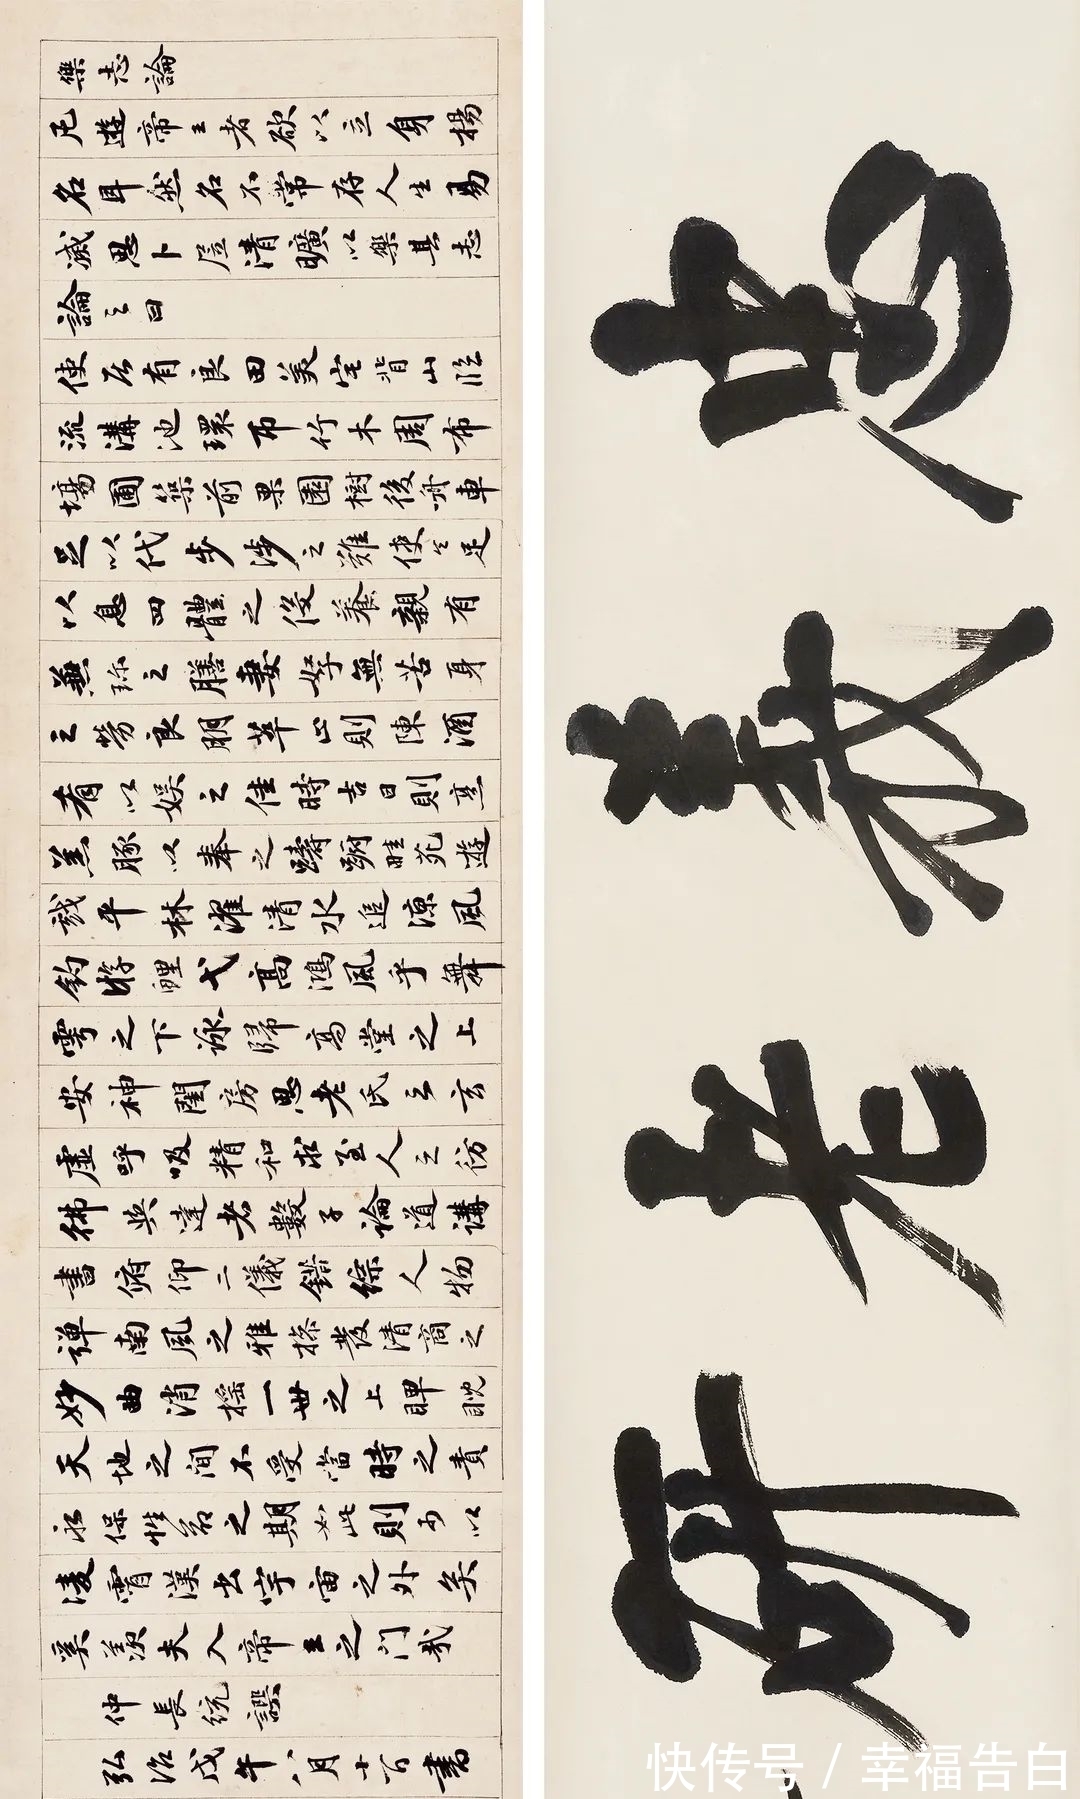 樂志論
凡遊帝王者欲以立身揚
名耳然名不常存人生易
滅思卜居清曠以樂其志
論之曰
使居有良田美宅背山臨
流溝池環帀竹木周布
場圃築前果園樹後舟車
足以代步涉之難使令足
以息四體之役養親有
兼珍之膳妻孥無苦身
之勞良朋萃止則陳酒
肴以娛之佳時吉日則烹
羔豚以奉之躊躕畦苑遊
戲平林濯清水追涼風
釣游鯉弋高鴻風乎舞
雩之下詠歸高堂之上
安神閨房思老氏之玄
虛呼吸精和求至人之彷
彿與達者數子論道講
書俯仰二儀錯綜人物
彈南風之雅操發清商之
妙曲消搖一世之上睥睨
天地之間不受當時之責
永保性命之期如此則可以
凌霄漢出宇宙之外矣
奚羨夫入帝王之門哉
仲長統譔
弘治戊午八月十日書
義
老
研
快传号 / 幸福告白